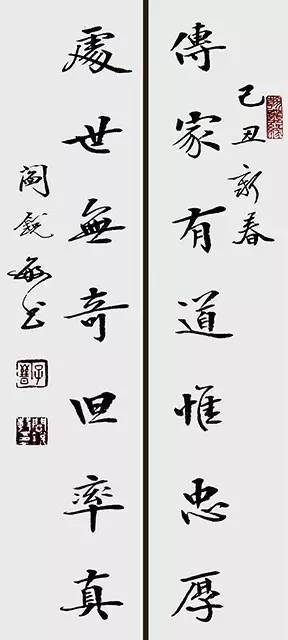 己丑新春
傳家有道惟忠厚
處世無奇但率真
閻銳敏书